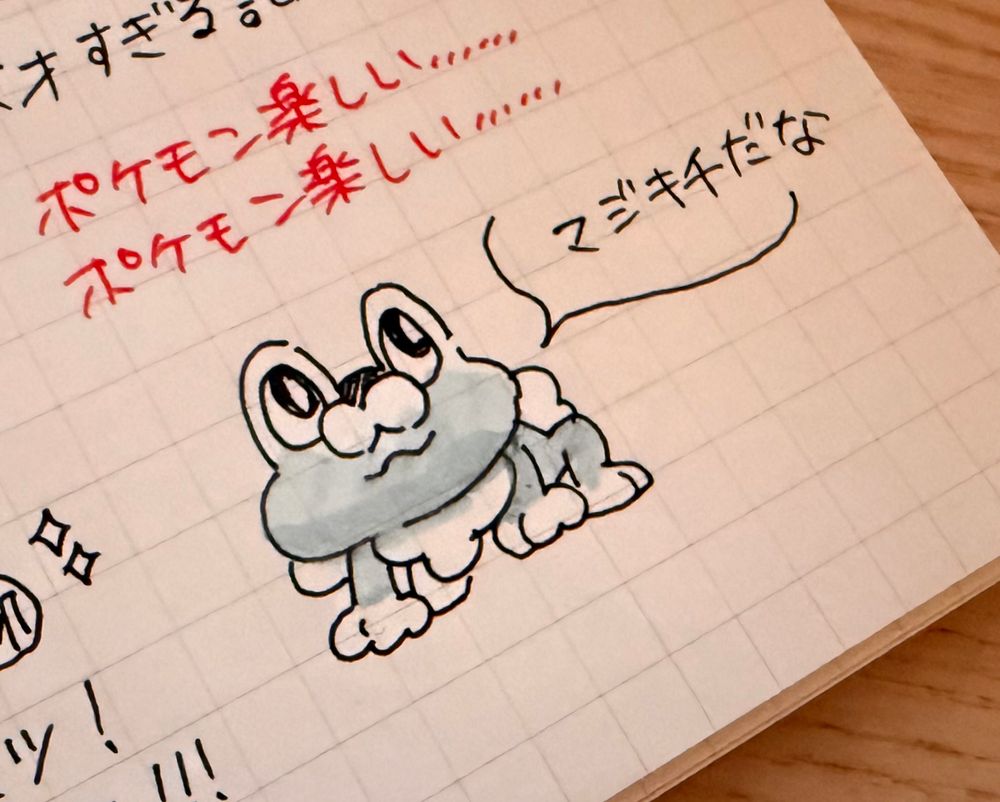 オすぎる
ポケモン楽しい……
ポケモン楽しい……
マジキチだな
ッ！
!!!